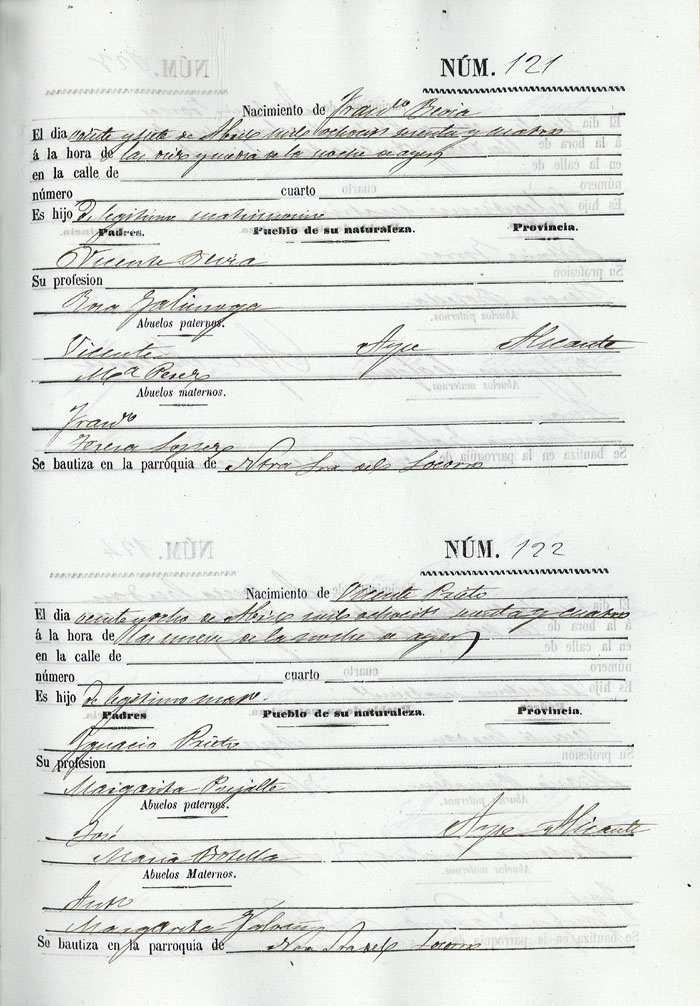 NÚM. 121
Nacimiento de Fran.co Beviá
El dia veinte y siete de Abril mil ochocis sesenta y cuatro
á la hora de las diez y media de la noche de ayer
en la calle de
número cuarto
Es hijo de legitimo matrimonio
Padres. Pueblo de su naturaleza. Provincia.
Vicente Beviá
Su profesion
Rosa Galinsoga
Abuelos paternos.
Vicente Aspe Alicante
M.a Perez
Abuelos maternos.
Fran.co
Teresa Lopez
Se bautiza en la parróquia de Ntra Sra del Socorro
NÚM. 122
Nacimiento de Vicente Prieto
El dia veinte y ocho de Abril mil ochocis sesenta y cuatro
á la hora de las nueve de la noche de ayer
en la calle de
número cuarto
Es hijo de legitimo mat.o
Padres Pueblo de su naturaleza. Provincia.
Ignacio Prieto
Su profesion
Margarita
Abuelos paternos.
José Aspe Alicante
Maria Botella
Abuelos Maternos.
Margarita
Se bautiza en la parroquia de Ntra Sra del Socorro